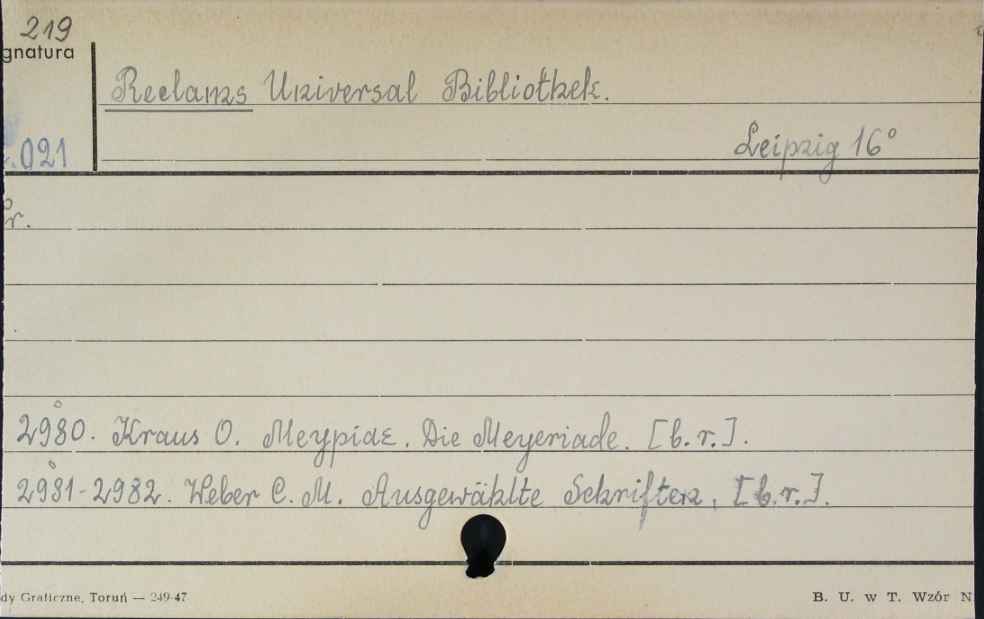 219
gnatura
Reclams Universal Bibliothek.
021
Leipzig 16°
r.
2980. Kraus O. Meypiae. Die Meyeriade. [b. r.].
2981-2982. Weber C. M. Ausgewählte Schriften, [b.r.].
dy Graficzne, Toruń — 249-47
B. U. w T. Wzór N